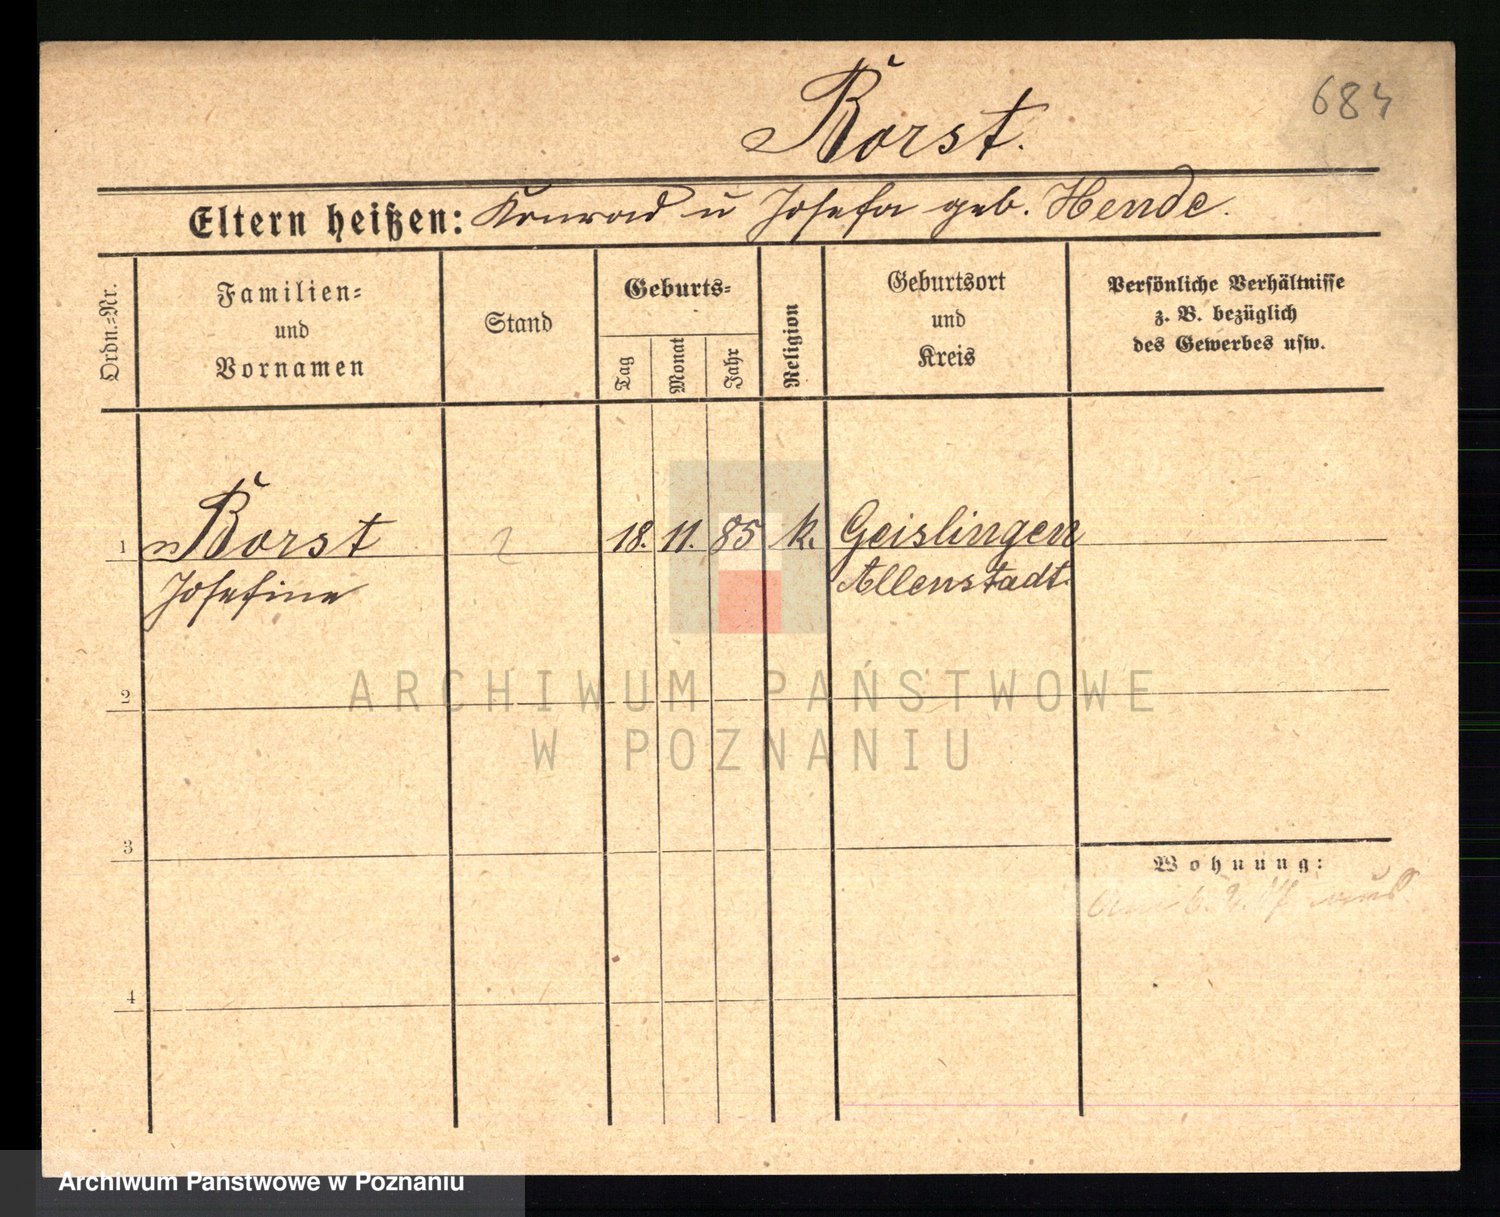 Borst.
684
Eltern heißen: Konrad u Josefa geb. Hende.
Ordn.=Nr.
Familien=
und
Vornamen
Stand
Geburts=
Tag
Monat
Jahr
Religion
Geburtsort
und
Kreis
Persönliche Verhältnisse
z. B. bezüglich
des Gewerbes usw.
1 Borst 18. 11. 85 k. Geislingen
Josefine Allenstadt.
ARCHIWUM PAŃSTWOWE
W POZNANIU
2
3
Wohnung:
aus
4
Archiwum Państwowe w Poznaniu